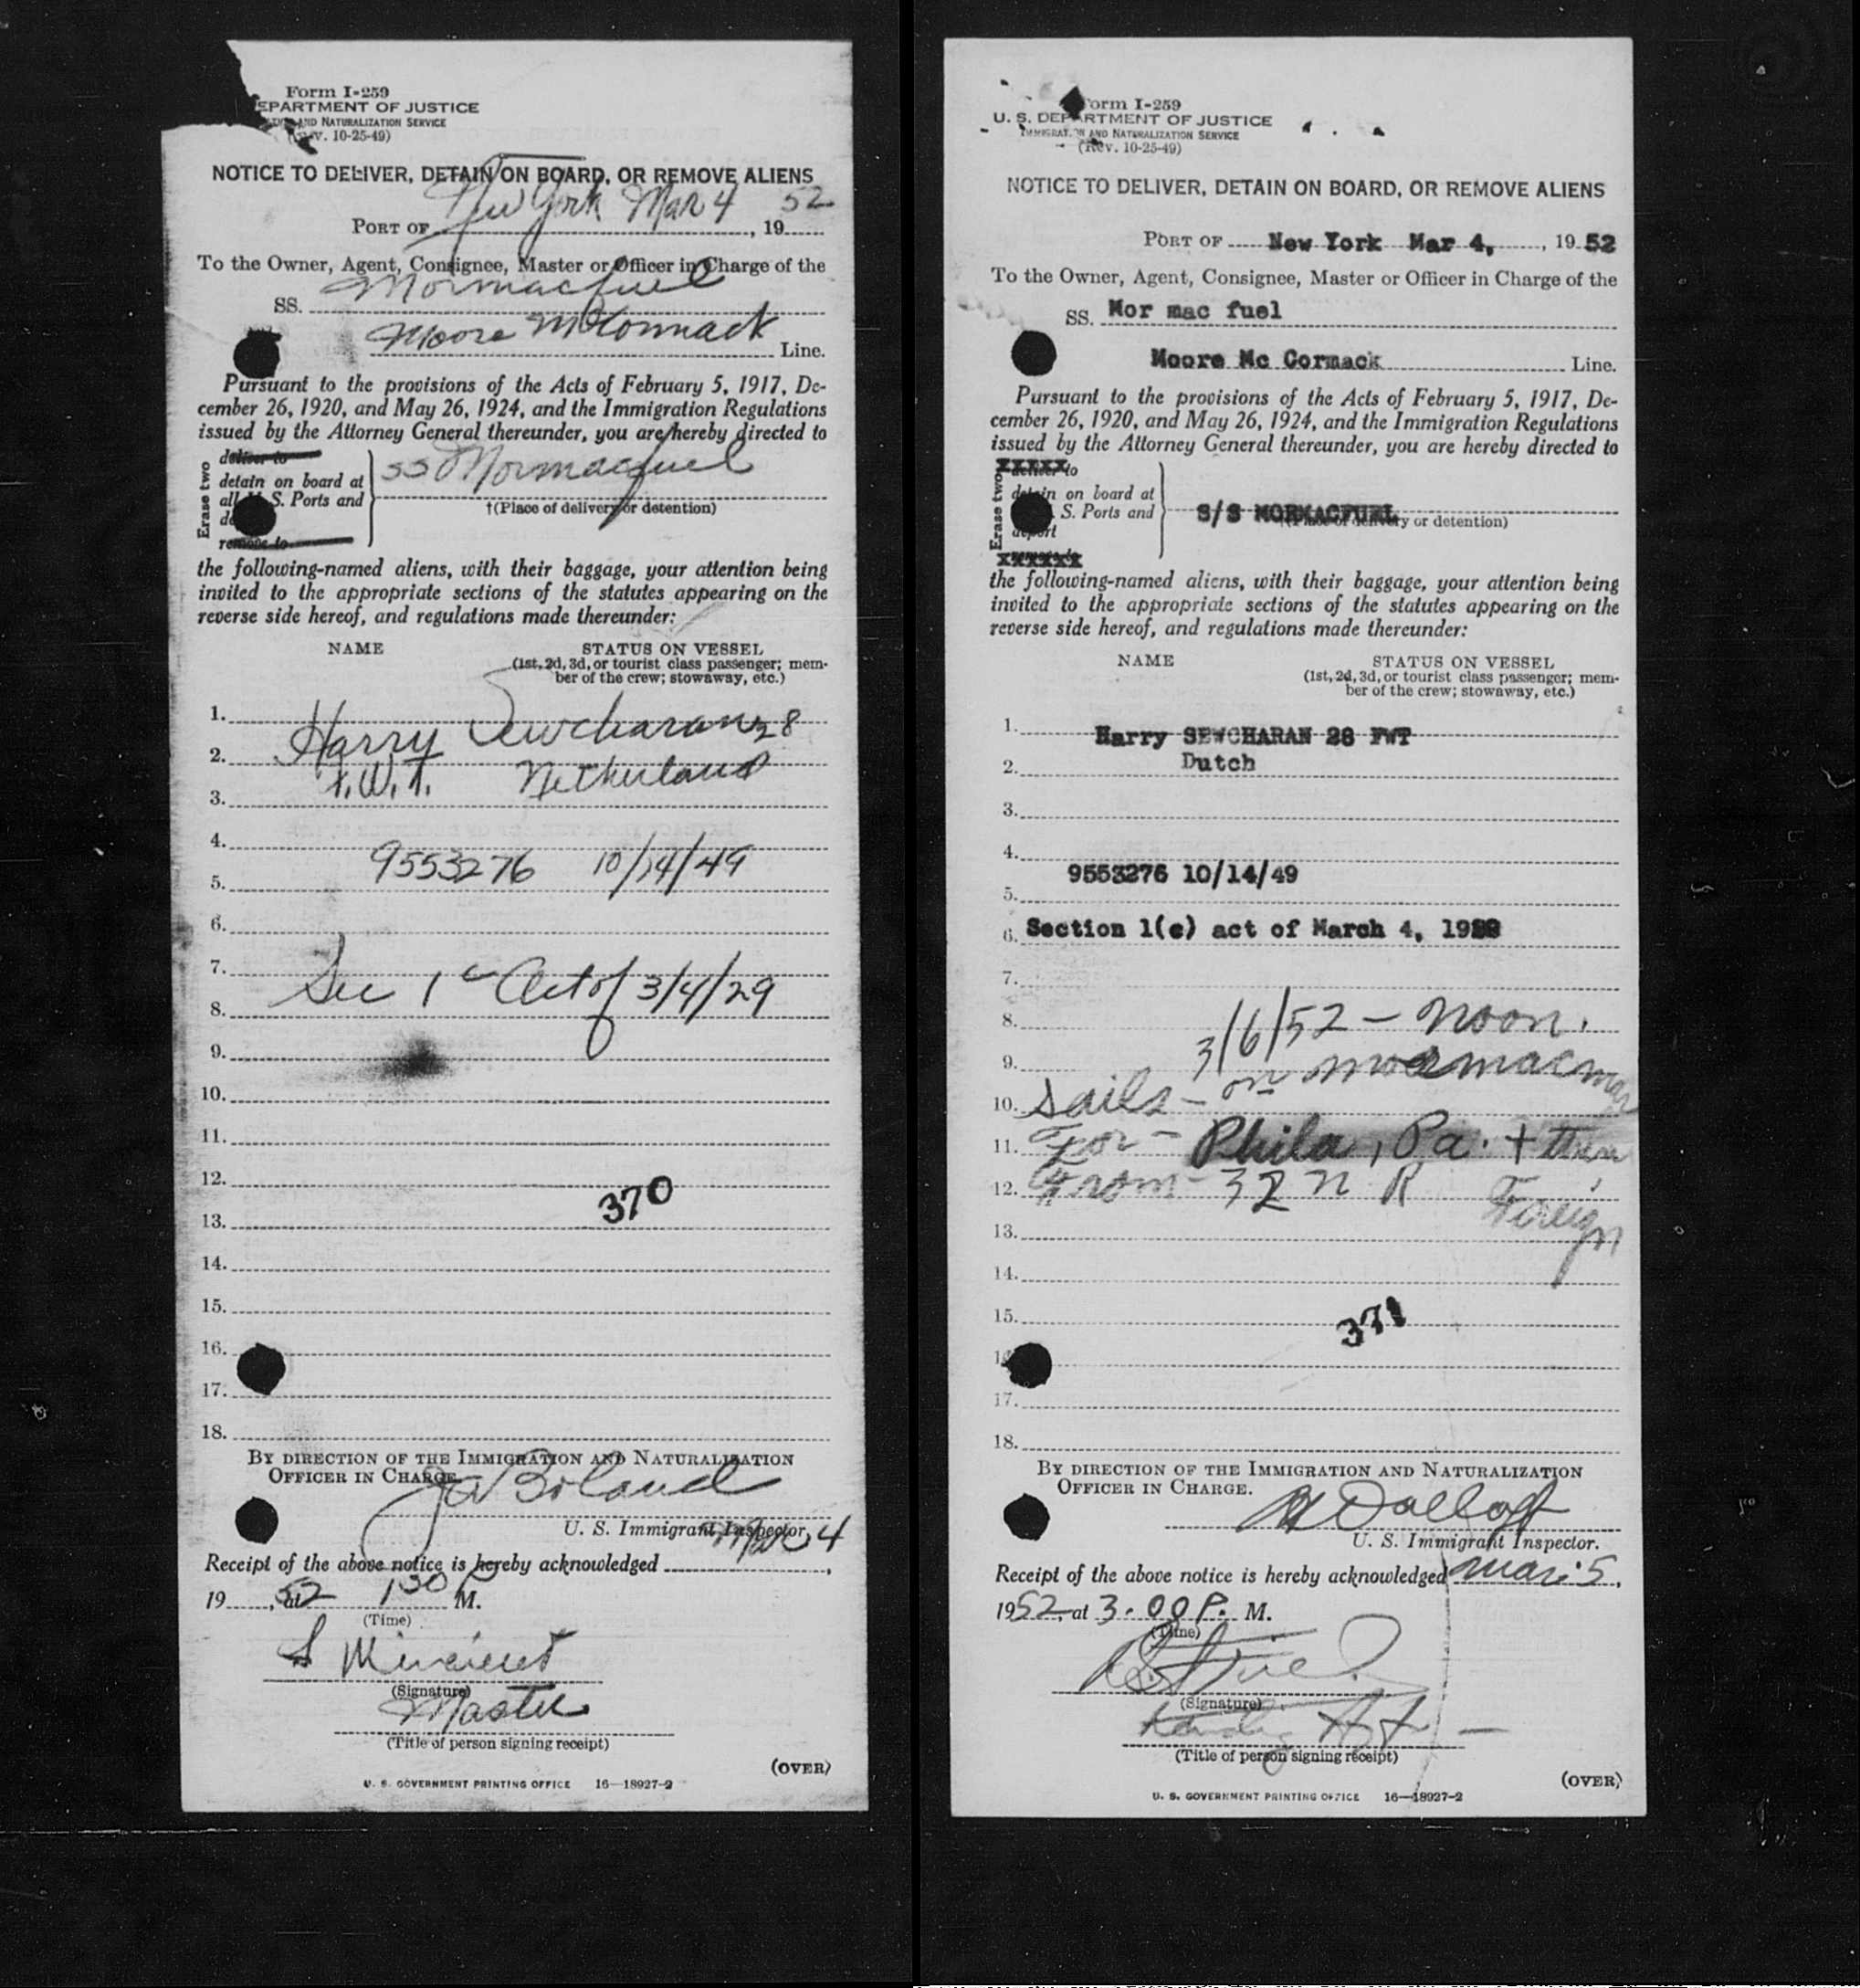 Form I-259
EPARTMENT OF JUSTICE
AND NATURALIZATION SERVICE
10-25-49)
NOTICE TO DELIVER, DETAIN ON BOARD, OR REMOVE ALIENS
PORT OF New York Mar 4, 1952
To the Owner, Agent, Consignee, Master or Officer in Charge of the
SS. Mormacfuel
Moore McCormack Line.
Pursuant to the provisions of the Acts of February 5, 1917, De-
cember 26, 1920, and May 26, 1924, and the Immigration Regulations
issued by the Attorney General thereunder, you are hereby directed to
Erase two
deliver to
detain on board at
all U. S. Ports and
remove to
SS Mormacfuel
†(Place of delivery or detention)
the following-named aliens, with their baggage, your attention being
invited to the appropriate sections of the statutes appearing on the
reverse side hereof, and regulations made thereunder:
NAME STATUS ON VESSEL
(1st, 2d, 3d, or tourist class passenger; mem-
ber of the crew; stowaway, etc.)
1.
Harry Sewcharan 28
2.
F.W.T. Netherland
3.
4.
9553276 10/14/49
5.
6.
7.
Sec 1c Act of 3/4/29
8.
9.
10.
11.
12.
370
13.
14.
15.
16.
17.
18.
BY DIRECTION OF THE IMMIGRATION AND NATURALIZATION
OFFICER IN CHARGE.
Boland
U. S. Immigrant Inspector.
Receipt of the above notice is hereby acknowledged Mar 4,
1952, at 1 30 P M.
(Time)
S
(Signature)
Master
(Title of person signing receipt)
(OVER)
U. S. GOVERNMENT PRINTING OFFICE 16—18927-2
Form I-259
U. S. DEPARTMENT OF JUSTICE
IMMIGRATION AND NATURALIZATION SERVICE
(Rev. 10-25-49)
NOTICE TO DELIVER, DETAIN ON BOARD, OR REMOVE ALIENS
PORT OF New York Mar 4, , 1952
To the Owner, Agent, Consignee, Master or Officer in Charge of the
SS. Mor mac fuel
Moore Mc Cormack Line.
Pursuant to the provisions of the Acts of February 5, 1917, De-
cember 26, 1920, and May 26, 1924, and the Immigration Regulations
issued by the Attorney General thereunder, you are hereby directed to
Erase two
deliver to
detain on board at
S. Ports and
deport
remove to
S/S MORMACFUEL
(Place of delivery or detention)
the following-named aliens, with their baggage, your attention being
invited to the appropriate sections of the statutes appearing on the
reverse side hereof, and regulations made thereunder:
NAME STATUS ON VESSEL
(1st, 2d, 3d, or tourist class passenger; mem-
ber of the crew; stowaway, etc.)
1. Harry SEWCHARAN 28 FWT
2. Dutch
3.
4.
9553276 10/14/49
5.
6. Section 1(c) act of March 4, 1929
7.
8. 3/6/52 – Noon.
9. on mormacmar
10. Sails –
11. For – Phila, Pa. + then
12. From – 32 N R Foreign
13.
14.
15.
371
16
17.
18.
BY DIRECTION OF THE IMMIGRATION AND NATURALIZATION
OFFICER IN CHARGE.
U. S. Immigrant Inspector.
Receipt of the above notice is hereby acknowledged Mar. 5,
1952, at 3.00 P. M.
(Time)
(Signature)
(Title of person signing receipt)
(OVER)
U. S. GOVERNMENT PRINTING OFFICE 16—18927-2